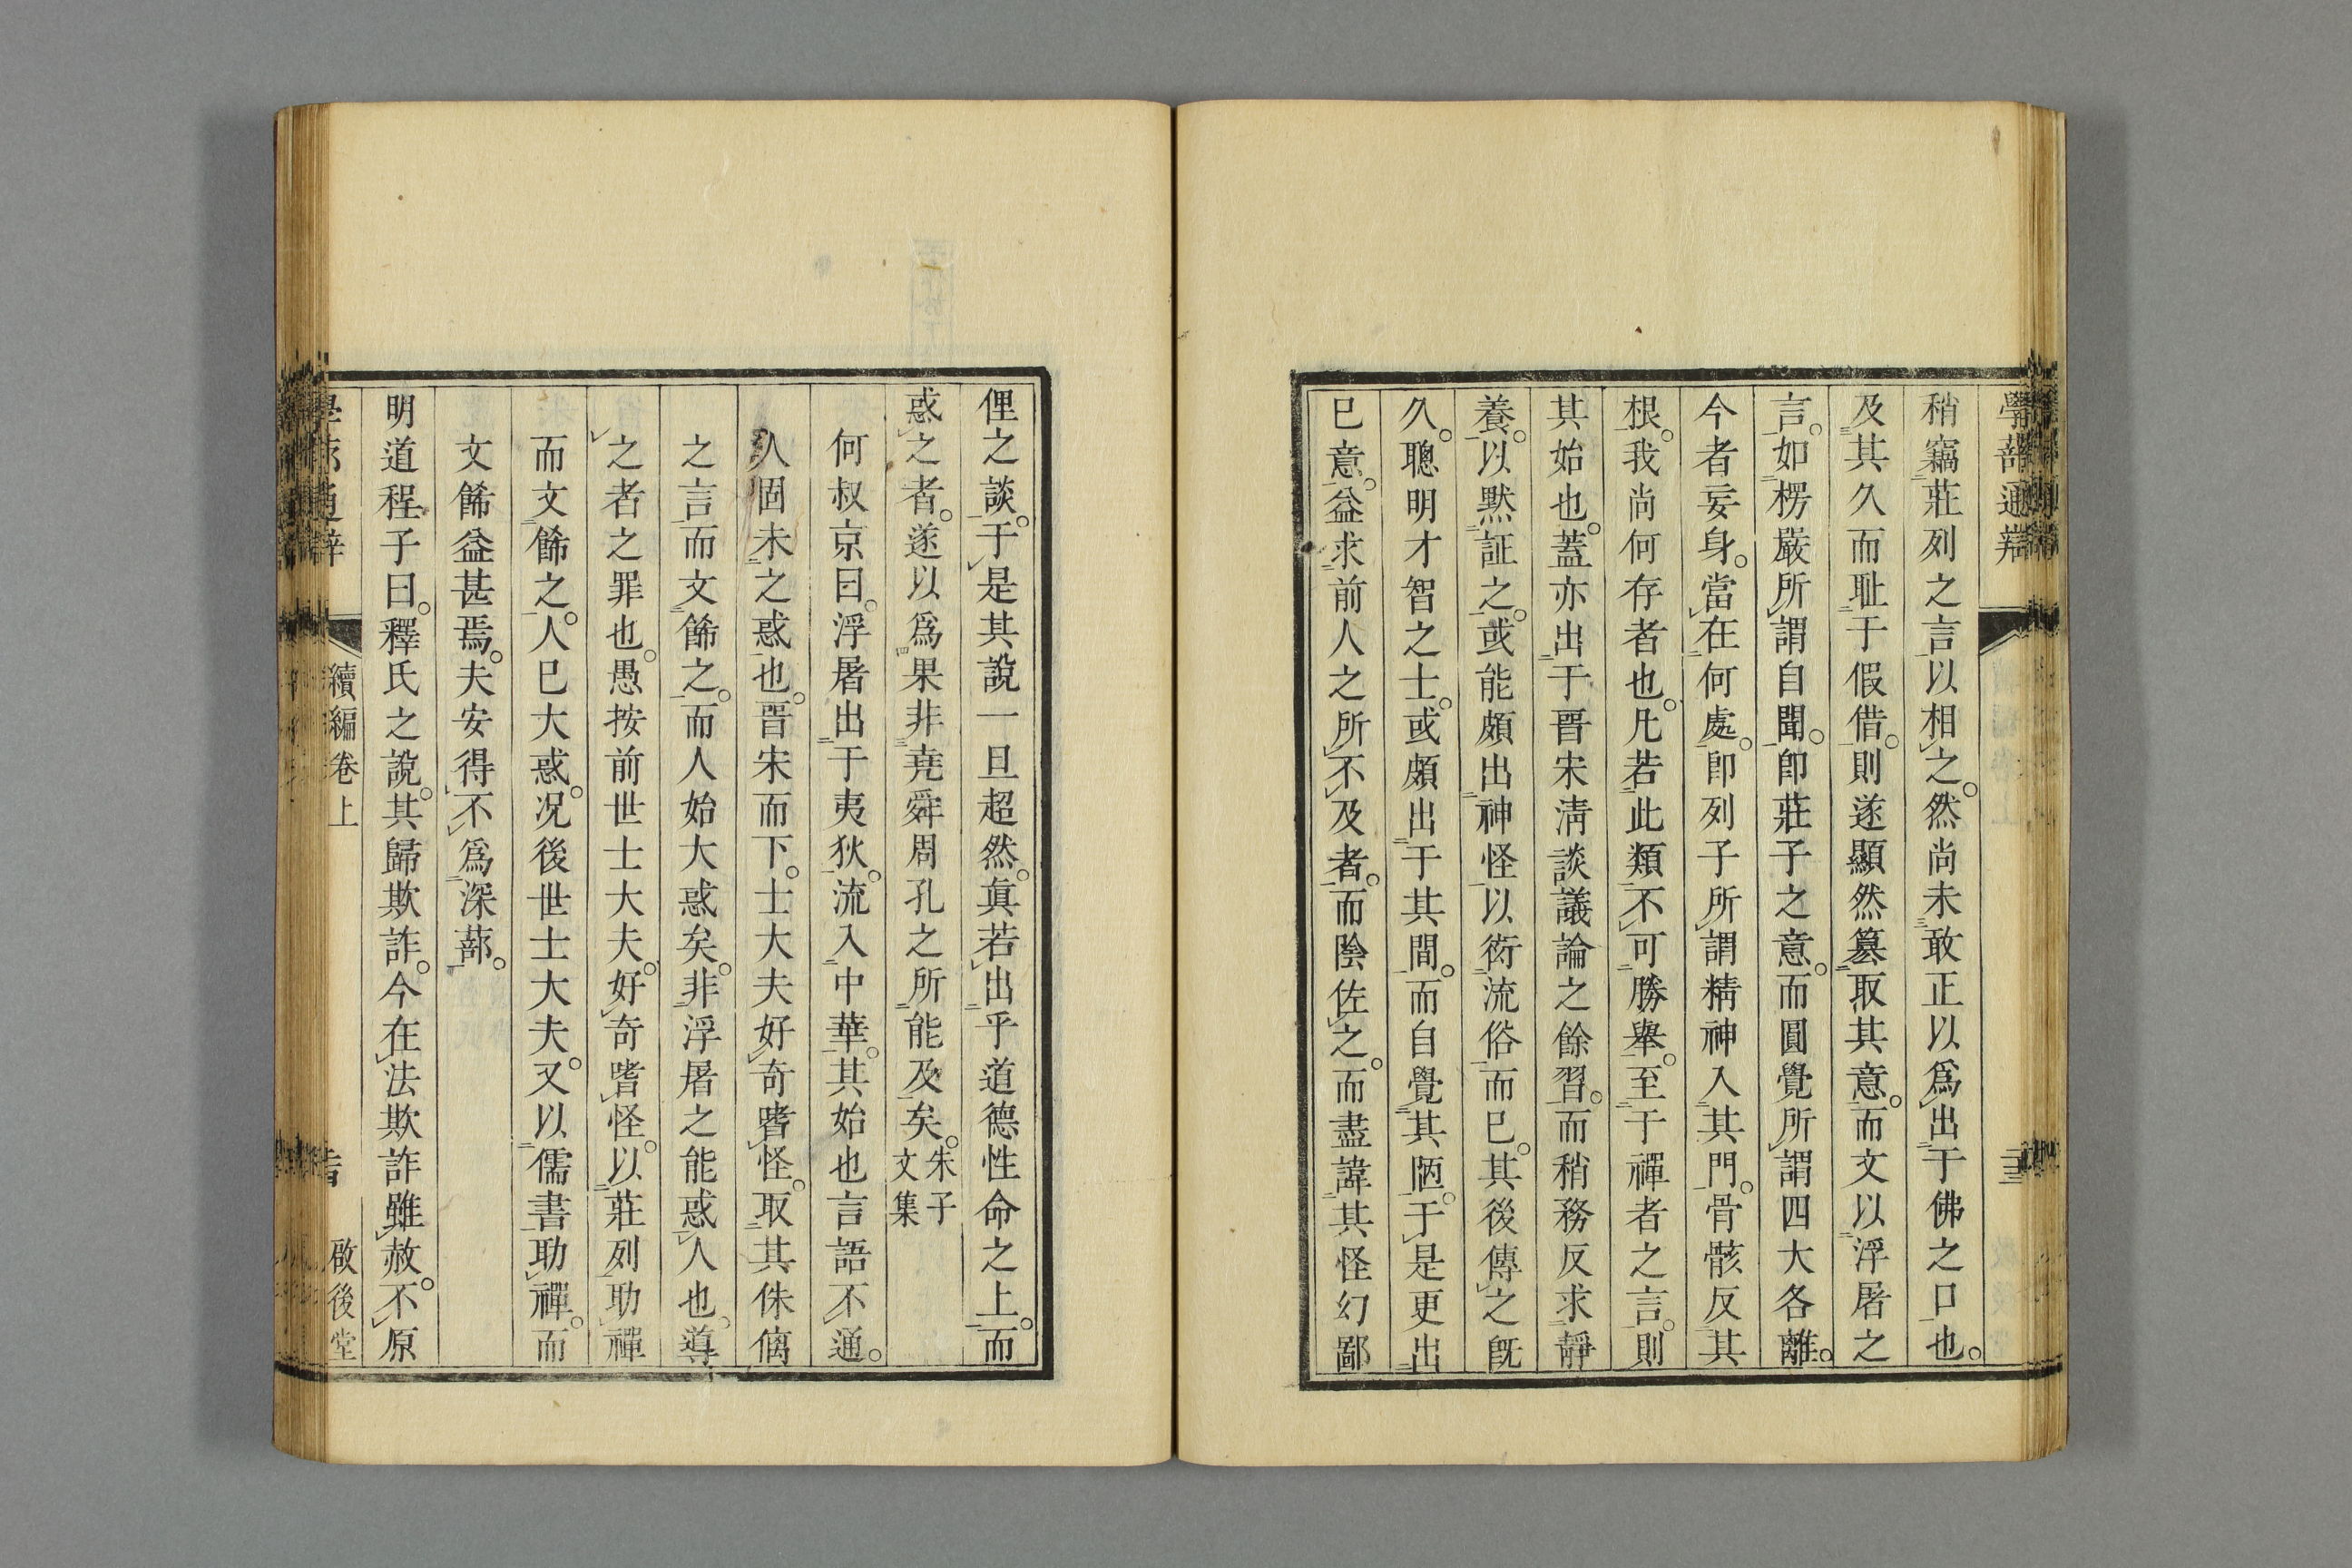 學蔀通辯
稍竊莊列之言以相之。然尚未敢正以爲出于佛之口也。
及其久而耻于假借。則遂顯然篡取其意。而文以浮屠之
言。如楞嚴所謂自聞。卽莊子之意。而圓覺所謂四大各離。
今者妄身。當在何處。卽列子所謂精神入其門。骨骸反其
根。我尚何存者也。凡若此類不可勝舉。至于禪者之言。則
其始也。蓋亦出于晉宋淸談議論之餘習。而稍務反求靜
養。以默証之。或能頗出神怪以衒流俗而巳。其後傳之旣
久。聰明才智之士。或頗出于其間。而自覺其陋。于是更出
巳意。益求前人之所不及者。而陰佐之。而盡諱其怪幻鄙
俚之談。于是其說一旦超然。眞若出乎道德性命之上。而
惑之者。遂以爲果非堯舜周孔之所能及矣。朱子文集
何叔京曰。浮屠出于夷狄。流入中華。其始也言語不通。
人固未之惑也。晉宋而下。士大夫好奇嗜怪。取其侏𠌯
之言而文餙之。而人始大惑矣。非浮屠之能惑人也。導
之者之罪也。愚按前世士大夫。好奇嗜怪。以莊列助禪
而文餙之。人巳大惑。况後世士大夫。又以儒書助禪。而
文餙益甚焉。夫安得不爲深蔀。
明道程子曰。釋氏之說。其歸欺詐。今在法欺詐雖赦。不原
續編卷上
啟後堂